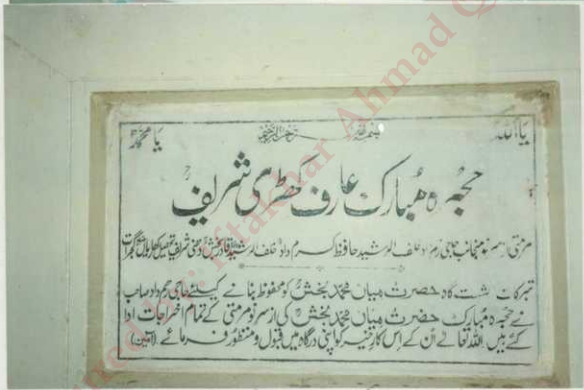 یا اللہ بسم اللہ الرحمن الرحیم یا محمد
حجرہ مبارک عارف کھڑی شریف
منجانب حاجی خلف الرشید حافظ کرم داد خلف الرشید حافظ قادر بخش شریف تحصیل کھاریاں ضلع گجرات
تبرکات نشست گاہ حضرت میاں محمد بخشؒ کو محفوظ بنانے کیلئے حاجی مہرداد صاحب
نے حجرہ مبارک حضرت میاں محمد بخشؒ کی ازسرنو مرمتی کے تمام اخراجات ادا
کئے ہیں اللہ تعالے اُن کے اِس کار خیر کو اپنی درگاہ میں قبول و منظور فرمائے (آمین)
Iftakhar Ahmad